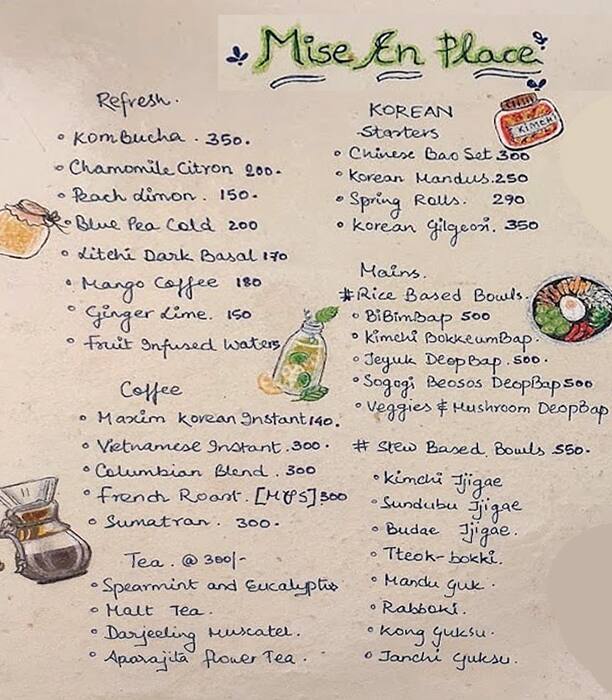 Mise En Place
Refresh.
• Kombucha. 350.
• Chamomile Citron 200.
• Peach Limon. 150.
• Blue Pea Cold 200
• Litchi Dark Basal 170
• Mango Coffee 180
• Ginger Lime. 150
• Fruit Infused Waters
Coffee
• Maxim Korean Instant 140.
• Vietnamese Instant. 300.
• Columbian Blend. 300
• French Roast. [M&S] 300
• Sumatran. 300.
Tea. @ 300/-
• Spearmint and Eucalyptus
• Malt Tea.
• Darjeeling Muscatel.
• Aparajita flower Tea.
KOREAN
Starters
KIMCHI
• Chinese Bao Set 300
• Korean Mandus. 250
• Spring Rolls. 290
• Korean Gilgeori. 350
Mains.
# Rice Based Bowls.
• BiBimBap 500
• Kimchi BokkeumBap.
• Jeyuk DeopBap. 500.
• Sogogi Beosos DeopBap 500
• Veggies & Mushroom DeopBap
# Stew Based Bowls 550.
• Kimchi Jjigae
• Sundubu Jjigae
• Budae Jjigae.
• Tteok-bokki.
• Mandu Guk.
• Rabboki.
• Kong Guksu.
• Janchi Guksu.